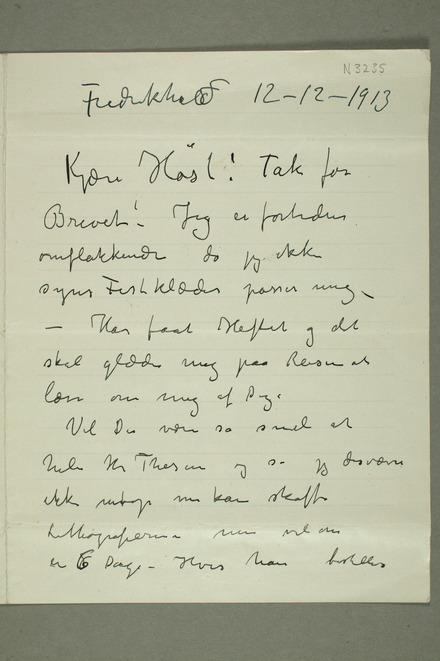 N 3235
Fredrikshald 12-12-1913
Kjære Höst! Tak for
Brevet! Jeg er fortiden
omflakkende da jeg ikke
synes Festklæder passer mig
– Har faat Heftet og det
skal glæde mig paa Reisen at
læse om mig af Dig.
Vil De være så snil at
hilse Hr Thesen og si jeg desværre
ikke
Lithografierne
6 Dage – Hvis han